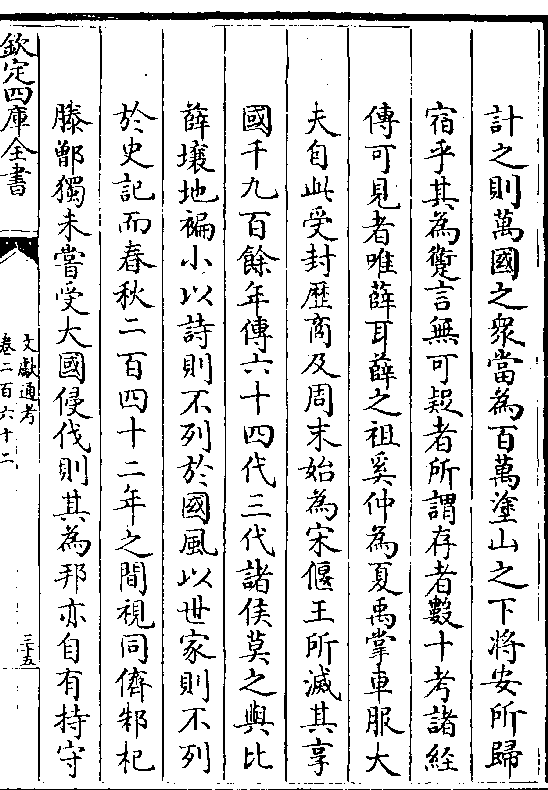 計之則萬國之衆當為百萬塗山之下將安所歸
宿乎其為躗言無可疑者所謂存者數十考諸經
傳可見者唯薛耳薛之祖奚仲為夏禹掌車服大
夫自此受封歴商及周末始為宋偃王所滅其享
國千九百餘年傳六十四代三代諸侯莫之與比
薛壤地褊小以詩則不列於國風以世家則不列
於史記而春秋二百四十二年之間視同儕邾杞
滕鄫獨未嘗受大國侵伐則其為邦亦自有持守
欽定四庫全書
文獻通考
卷二百六十二
三十五